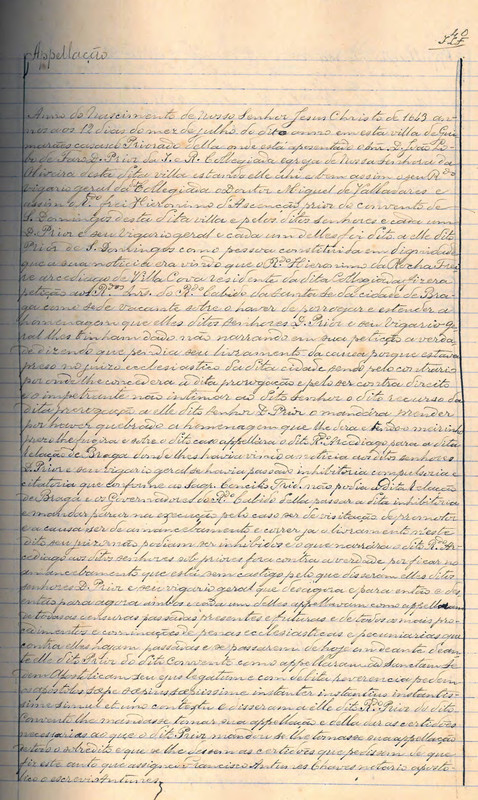 40
Appellação
Anno do Nascimento de Nosso Senhor Jesus Christo de 1643 an-
nos aos 12 dias do mez de julho do dito anno em esta villa de Gui-
marães casas do Priorado della onde está apresentado o snr. D.
de Faro D. Prior da I. e R. Collegiada egreja de Nossa Senhora da
Oliveira desta dita villa estando elle ahi e bem assim o seu R.do
vigario geral da Collegiada o Doutor Miguel de Valladares e
assim o frei Hieronimo d'Ascenção prior do convento de
S. Domingos desta dita villa e pelos ditos senhores e cada um
D. Prior e seu vigario geral e cada um delles foi dito a elle dito
Prior de S. Domingos como pessoa constituida em dignidade
que a sua noticia era vindo que o R.do Hieronimo da Rocha Frei-
re arcediago de Villa Cova residente da dita Collegiada fizera
petição aos R.dos snrs. do R.do Cabido da Santa Sé da cidade de Bra-
ga como sede vacante sobre o haver de prorogar e estender a
homenagem que elles ditos senhores D. Prior e seu Vigario ge-
ral lhes tinham dado não narrando em sua petição a verda-
de dizendo que pendia seu livramento da causa porque estava
preso no juizo ecclesiastico da dita cidade sendo pelo contrario
por onde lhe concedera a dita prorogação e pelo ser contra direito
e o impetrante não intimar ao dito senhor o dito recurso da
dita prorogação a elle dito senhor D. Prior o mandára prender
por haver quebrado a homenagem que lhe dera e
preso lhe fugira e sobre o dito caso appellára o dito R.do Arcediago para a dita
Relação de Braga donde lhes havia vindo a noticia aos ditos senhores
D. Prior e seu vigario geral se havia passado inhibitoria compulsoria e
citatoria que conforme ao Sagr. Concilio Trid. não podia a dita Relação
de Braga e os Governadores do R.do Cabido della passar a dita inhibitoria
e mandar parar na execução pelo caso ser de visitação do promotor
e a causa ser de amancebamento e correr já o livramento neste
dito seu juizo não podiam ser inhibidos e o que narrára o dito R.do Ar-
cediago aos ditos senhores fora contra a verdade por ficar no
amancebamento que está sem castigo pelo que disseram elles ditos
senhores D. Prior e seu vigario geral que desde agora e para então e des
então para agora ambos e cada um delles appellavam como appellaram
de todas as censuras passadas presentes e futuras e de todos os mais pro-
cedimentos e comminações de penas ecclesiasticas e pecuniarias que
contra elles sejam passadas e se passarem de hoje em deante dean-
te elle dito Prior do dito Convento como appellaram ad Sanctam Se-
dem Apostolicam seu quo legatime e com devida reverencia pedem
os apostolos sæpe sæpius sæpissime instanter instantius instantis-
sime simul et uno contextu e disseram a elle dito R.do Prior do dito
Convento lhe mandasse tomar sua appellação e della dar as certidões
necessarias ao que o dito Prior mandou se lhe tomasse sua appellação
e todo o sobredito e que se lhe dessem as certidões que pedissem de que
fiz este auto que assignou Francisco Antunes Chaves notario aposto-
lico o escrevi Antunes